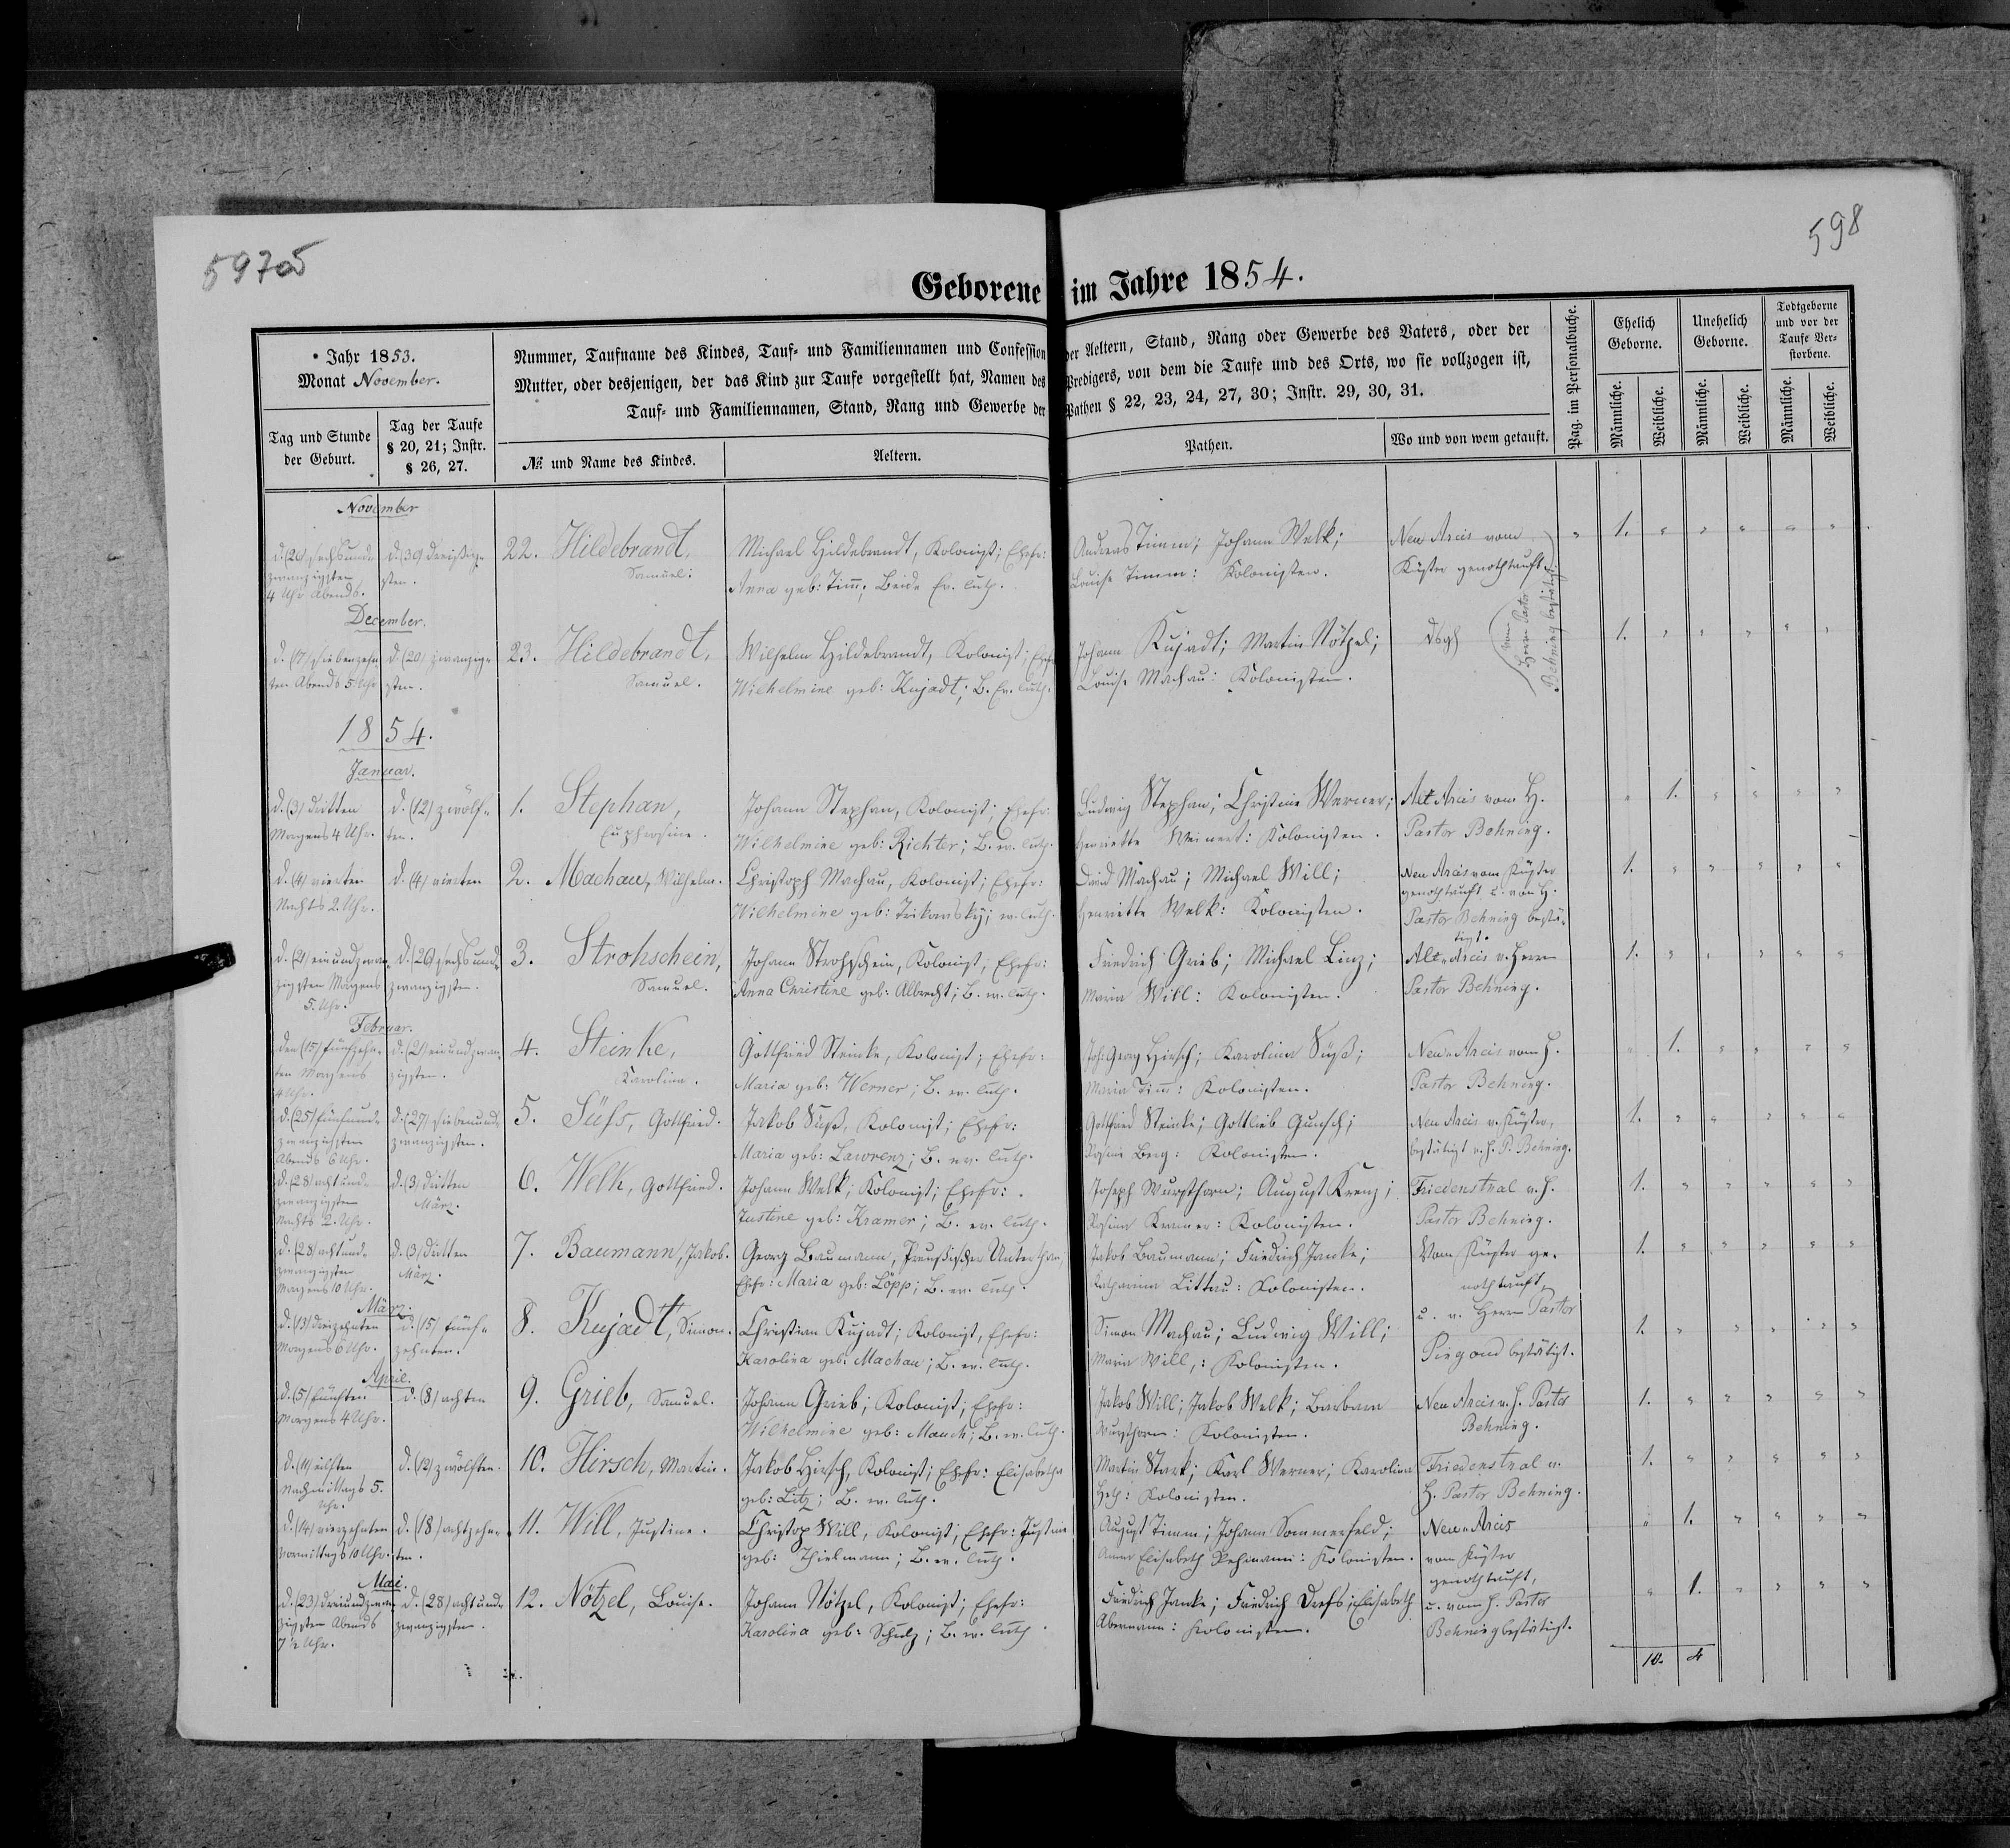 597 об
598
Geborene im Jahre 1854.
Jahr 1853.
Monat November.
Tag und Stunde der Geburt.
Tag der Taufe § 20, 21; Instr. § 26, 27.
Nummer, Taufname des Kindes, Tauf- und Familiennamen und Confession der Aeltern, Stand, Rang oder Gewerbe des Vaters, oder der
Mutter, oder desjenigen, der das Kind zur Taufe vorgestellt hat, Namen des Predigers, von dem die Taufe und des Orts, wo sie vollzogen ist,
Tauf- und Familiennamen, Stand, Rang und Gewerbe der Pathen § 22, 23, 24, 27, 30; Instr. 29, 30, 31.
№ und Name des Kindes.
Aeltern.
Pathen.
Wo und von wem getauft.
Pag. im Personalbuche.
Ehelich Geborne.
Unehelich Geborne.
Todtgeborne und vor der Taufe Verstorbene.
Männliche. Weibliche. Männliche. Weibliche. Männliche. Weibliche.
November
d. (26) sechsund-
zwanzigsten
4 Uhr Abends.
d. (30) dreißig-
sten.
22. Hildebrandt,
Samuel:
Michael Hildebrandt, Kolonist; Ehefr:
Anna geb: Tim̄; Beide Ev. luth.
Andreas Timm; Johann Welk;
Louise Timm: Kolonisten.
Neu Arcis vom
Küster genothtauft.
1.
December.
d. (17) siebenzehn
ten Abends 5 Uhr
d. (20) zwanzig-
sten.
23. Hildebrandt,
Samuel.
Wilhelm Hildebrandt, Kolonist; Ehefr
Wilhelmine geb: Kujadt; B. Ev. luth.
Johann Kujadt; Martin Nötzel;
Louise Machau: Kolonisten.
dsgl
(vom
Herrn Pastor
Behning bestätigt)
1.
1854.
Januar.
d. (3) dritten
Morgens 4 Uhr.
d. (12) zwölf-
ten.
1. Stephan,
Euphrosine.
Johann Stephan, Kolonist; Ehefr:
Wilhelmine geb: Richter; B. ev. luth.
Ludwig Stephan; Christine Werner;
Henriette Weinert: Kolonisten.
Alt Arcis vom H.
Pastor Behning.
1.
d. (4) vierten
Nachts 2. Uhr.
d. (4) vierten
2. Machau, Wilhelm.
Christoph Machau, Kolonist; Ehefr:
Wilhelmine geb: Trikowsky; ev. luth.
David Machau; Michael Will;
Henriette Welk: Kolonisten.
Neu Arcis vom Küster
genothtauft u. von H.
Pastor Behning bestä-
tigt.
1.
d. (21) einundzwan-
zigsten Morgens
5. Uhr.
d. (26) sechsund-
zwanzigsten.
3. Strohschein,
Samuel.
Johann Strohschein, Kolonist, Ehefr:
Anna Christine geb: Albrecht; B. ev. luth.
Friedrich Grieb; Michael Linz;
Maria Will: Kolonisten.
Alt-Arcis v. Herrn
Pastor Behning.
1.
Februar.
den (15) fünfzehn-
ten Morgens
4 Uhr.
d. (21) einundzwan-
zigsten.
4. Steinke,
Karolina.
Gottfried Steinke, Kolonist; Ehefr:
Maria geb: Werner; B. ev. luth.
Joh: Georg Hirsch; Karolina Süß;
Maria Tim̄: Kolonisten.
Neu-Arcis vom H.
Pastor Behning.
1.
d. (25) fünfund-
zwanzigsten
Abends 6 Uhr.
d. (27) siebenund-
zwanzigsten.
5. Süss, Gottfried.
Jakob Süß, Kolonist; Ehefr:
Maria geb: Lawrenz; B. ev. luth.
Gottfried Steinke; Gottlieb Gunsch;
Rosine Berg: Kolonisten.
Neu Arcis v. Küster,
bestätigt v. H. P. Behning.
1.
d. (28) achtund-
zwanzigsten
Nachts 2. Uhr.
d. (3) dritten
März.
6. Welk, Gottfried.
Johann Welk; Kolonist; Ehefr:
Justine geb: Kramer; B. ev. luth.
Joseph Wursthorn; August Krenz;
Rosina Kramer: Kolonisten.
Friedensthal v. H.
Pastor Behning.
1.
d. (28) achtund-
zwanzigsten
Morgens 10 Uhr.
d. (3) dritten
März.
7. Baumann, Jakob.
Georg Baumann, Preußischer Unterthan,
Ehefr: Maria geb: Löpp; B. ev. luth.
Jakob Baumann; Friedrich Janke;
Katharina Littau: Kolonisten.
Vom Küster ge-
nothtauft,
1.
März.
d. (13) dreizehnten
Morgens 6 Uhr.
d. (15) fünf-
zehnten.
8. Kujadt, Simon.
Christian Kujadt; Kolonist, Ehefr:
Karolina geb: Machau; B. ev. luth.
Simon Machau; Ludwig Will;
Maria Will,: Kolonisten.
u. v. Herrn Pastor
Pingoud bestätigt.
1.
April.
d. (5) fünften
Morgens 4 Uhr.
d. (8) achten
9. Grieb, Samuel.
Johann Grieb; Kolonist; Ehefr:
Wilhelmine geb: Mauch; B. ev. luth.
Jakob Will; Jakob Welk; Barbara
Wursthorn: Kolonisten.
Neu Arcis v. H. Pastor
Behning.
1.
d. (11) eilften
Nachmittags 5.
Uhr.
d. (12) zwölften.
10. Hirsch, Martin.
Jakob Hirsch, Kolonist; Ehefr: Elisabetha
geb: Litz; B. ev. luth.
Martin Stark; Karl Werner; Karolina
Kolonisten.
Friedensthal v.
H. Pastor Behning.
1.
d. (14) vierzehnten
Vormittags 10 Uhr.
d. (18) achtzehn-
ten.
11. Will, Justine.
Christop Will, Kolonist, Ehefr: Justine
geb: Thielmann; B. ev. luth.
August Timm; Johann Sommerfeld;
Anna Elisabeth: Kolonisten.
Neu-Arcis
vom Küster
genothtauft,
1.
Mai.
d. (23) dreiundzwan-
zigsten Abends
7 ½ Uhr.
d. (28) achtund-
zwanzigsten.
12. Nötzel, Louise.
Johann Nötzel, Kolonist; Ehefr:
Karolina geb: Schulz; B. ev. luth.
Friedrich Janke; Friedrich Drefs; Elisabeth
Abermann: Kolonisten.
u. vom H. Pastor
Behning bestätigt.
1.
10. 4